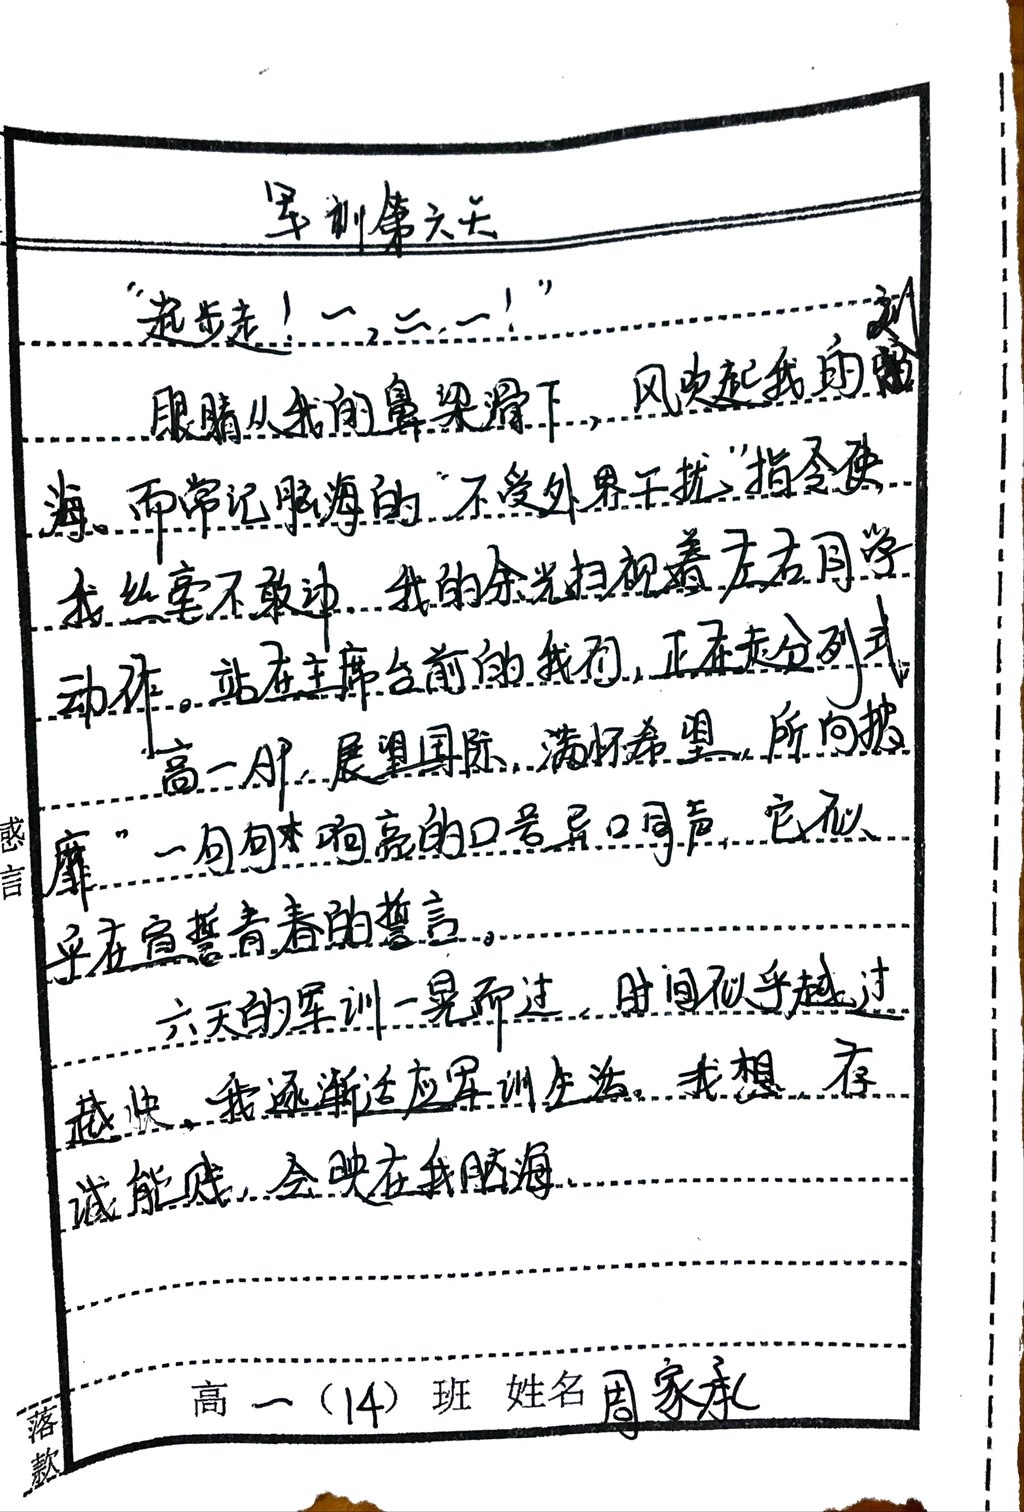 军训第六天
“起步走！一，二，一！”
眼睛从我的鼻梁滑下，风吹起我的刘
海。而常记脑海的“不受外界干扰”指令使
我丝毫不敢动，我的余光扫视着左右同学
动作。站在主席台前的我们，正在走分列式
高一AP，展望国际，满怀希望，所向披
靡”一句句响亮的口号异口同声，它似
乎在宣誓青春的誓言。
六天的军训一晃而过，时间似乎越过
越快，我逐渐适应军训生活。我想，存
诚能贱，会映在我脑海.
感言
高一（14）班 姓名周家承
落款